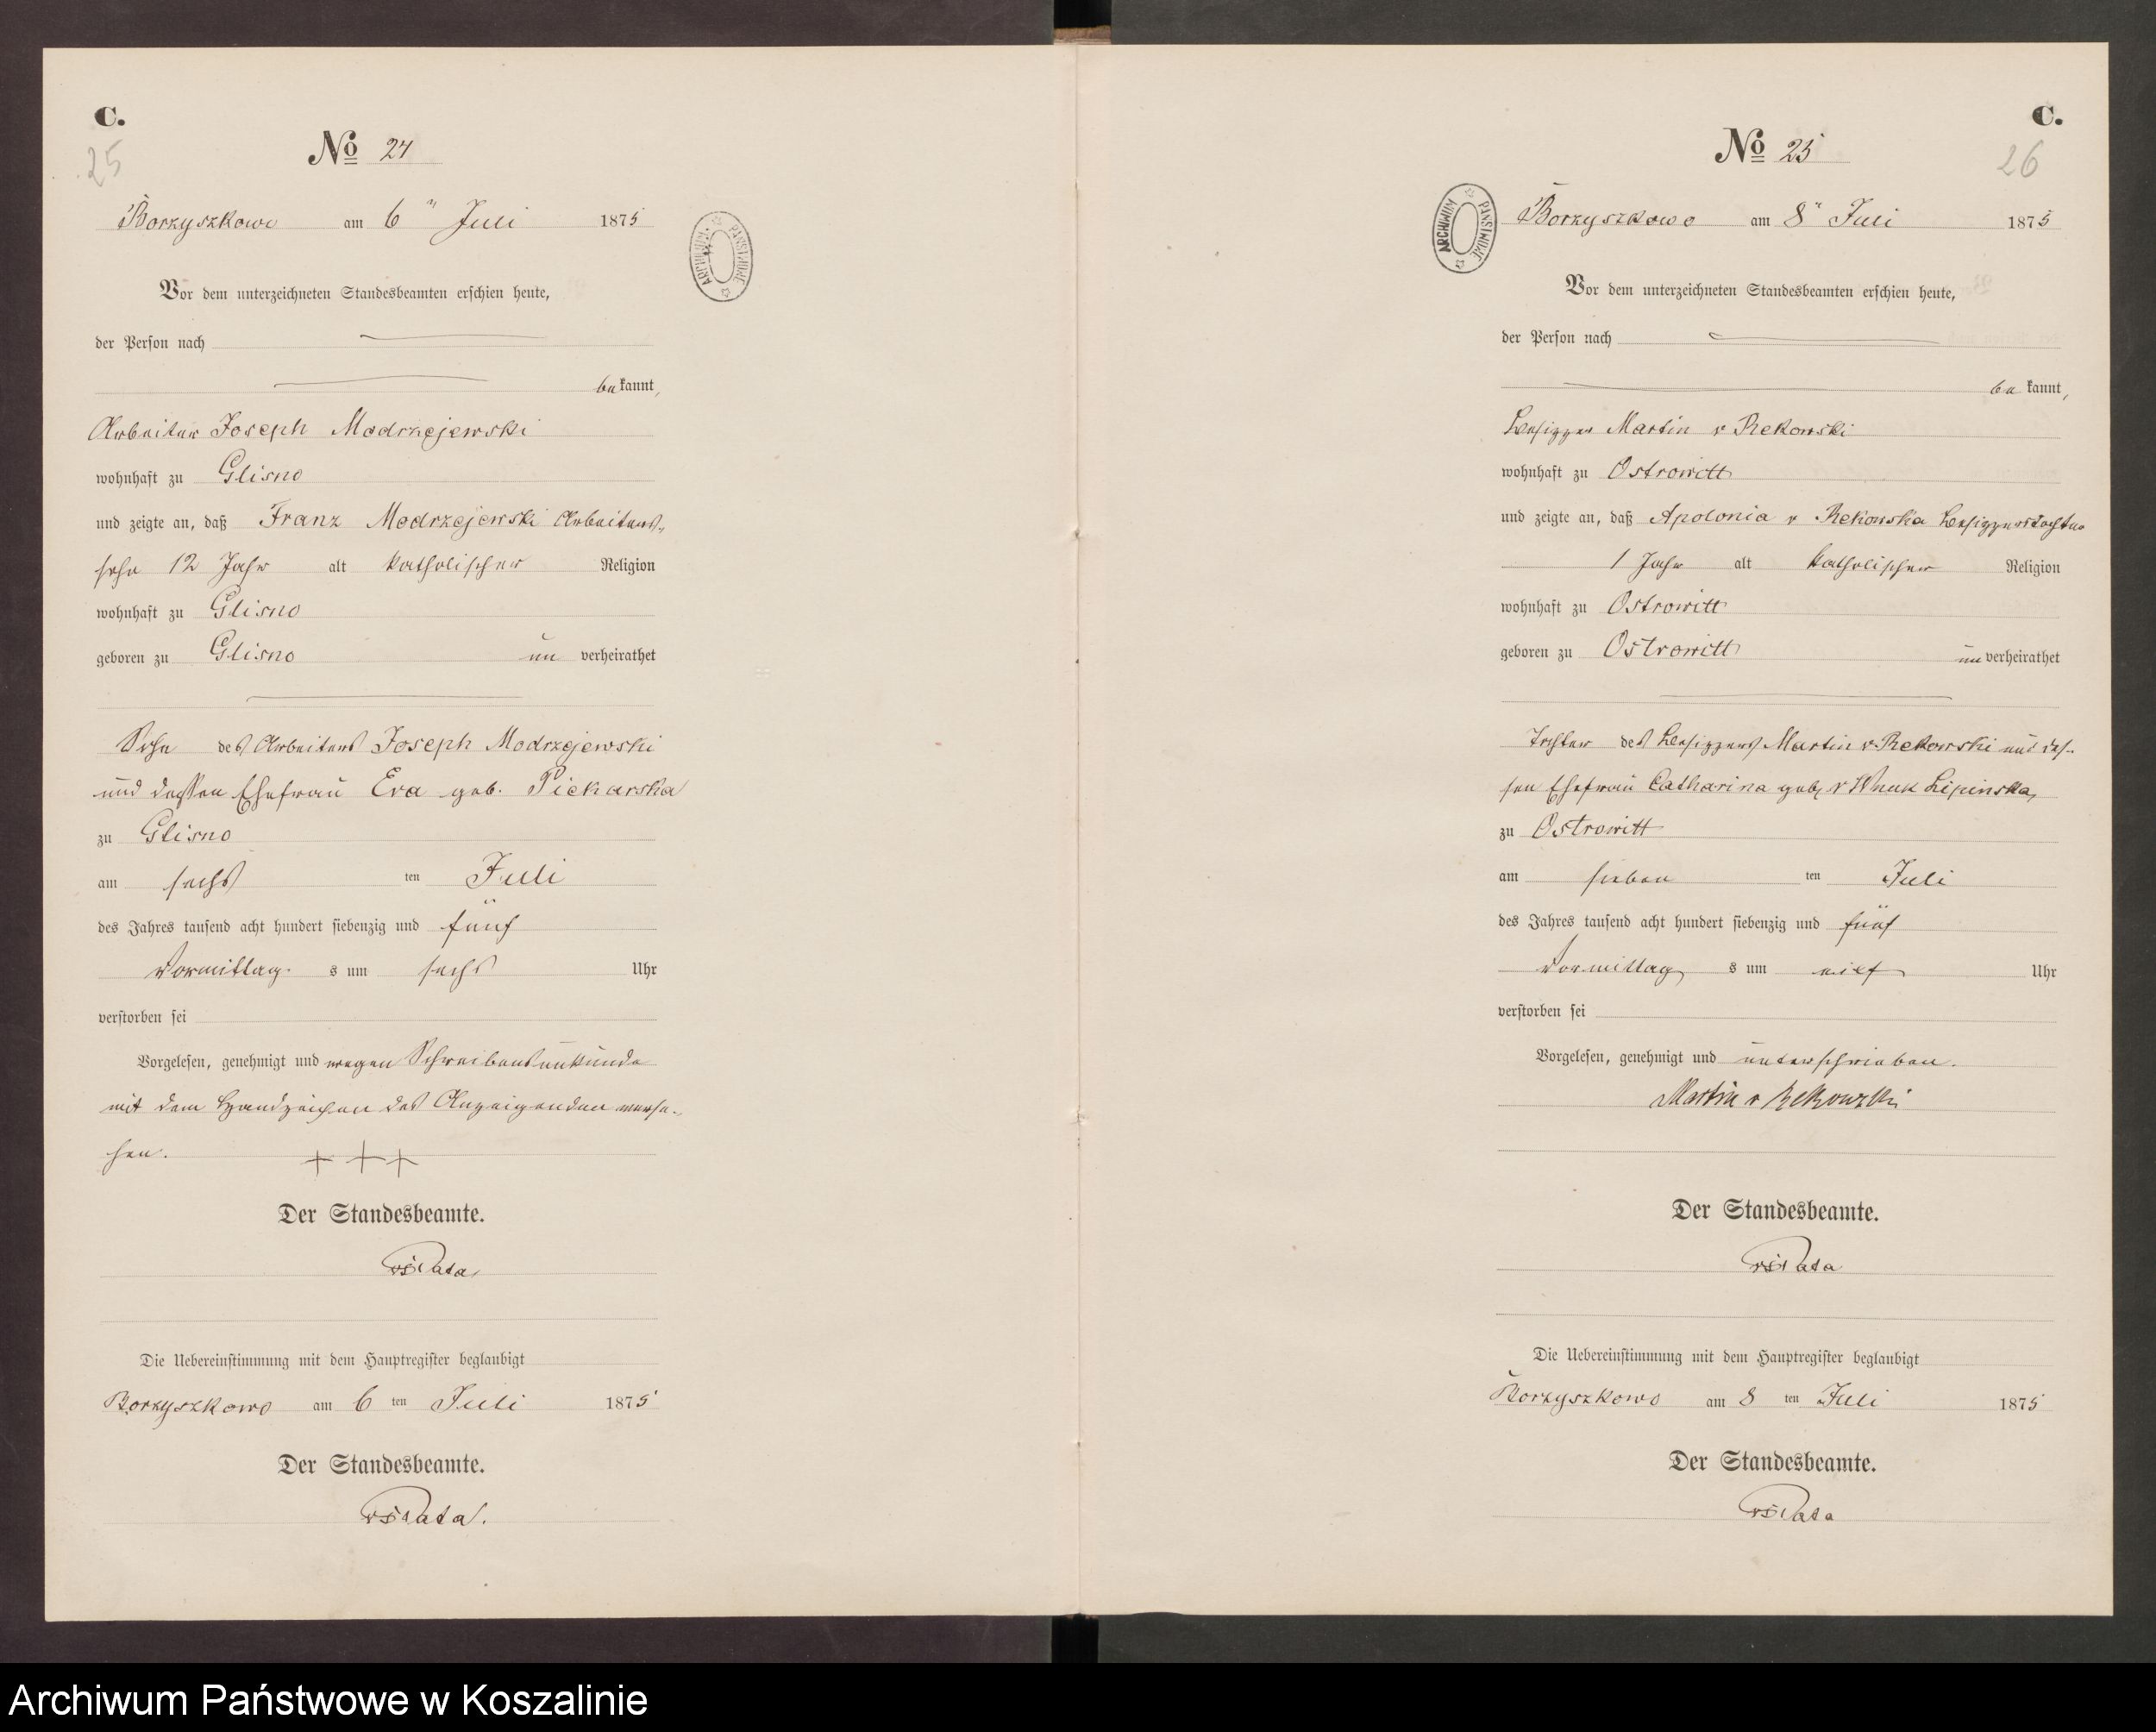 C.
25
No 24
Borzyszkowo am 6ten Juli 1875
Vor dem unterzeichneten Standesbeamten erschien heute,
der Person nach
bekannt,
Arbeiter Joseph Modrzejewski
wohnhaft zu Glisno
und zeigte an, daß Franz Modrzejewski Arbeiters-
sohn 12 Jahr alt katholischer Religion
wohnhaft zu Glisno
geboren zu Glisno un verheirathet
Sohn des Arbeiters Joseph Modrzejewski
und dessen Ehefrau Eva geb. Piekarska
zu Glisno
am sechs ten Juli
des Jahres tausend acht hundert siebenzig und fünf
Vormittag s um sechs Uhr
verstorben sei
Vorgelesen, genehmigt und wegen Schreibensunkunde
mit dem Handzeichen des Anzeigenden verse-
hen. +++
Der Standesbeamte.
Die Uebereinstimmung mit dem Hauptregister beglaubigt
Borzyszkowo am 6 ten Juli 1875
Der Standesbeamte.
ARCHIWUM PAŃSTWOWE
C.
26
No 25
Borzyszkowo am 8ten Juli 1875
Vor dem unterzeichneten Standesbeamten erschien heute,
der Person nach
be kannt,
Besitzer Martin v Rekowski
wohnhaft zu Ostrowitt
und zeigte an, daß Apolonia v Rekowska Besitzerstochter
1 Jahr alt katholischer Religion
wohnhaft zu Ostrowitt
geboren zu Ostrowitt un verheirathet
Tochter des Besitzers Martin v Rekowski und des-
sen Ehefrau Catharina geb. v Wnuk Lipinska,
zu Ostrowitt
am sieben ten Juli
des Jahres tausend acht hundert siebenzig und fünf
Vormittag s um elf Uhr
verstorben sei
Vorgelesen, genehmigt und unterschrieben.
Martin v Rekowzki
Der Standesbeamte.
Die Uebereinstimmung mit dem Hauptregister beglaubigt
Borzyszkowo am 8 ten Juli 1875
Der Standesbeamte.
ARCHIWUM PAŃSTWOWE
Archiwum Państwowe w Koszalinie